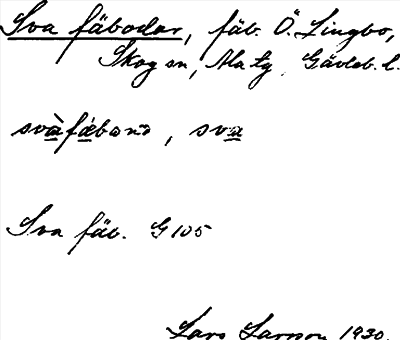 Sva fäbodar, fäb. Ö. Lingbo,
Skog sn, Ala tg, Gävleb. l.
svàfǽbωnə, sva
Sva fäb. G 105
Lars Larson 1930.